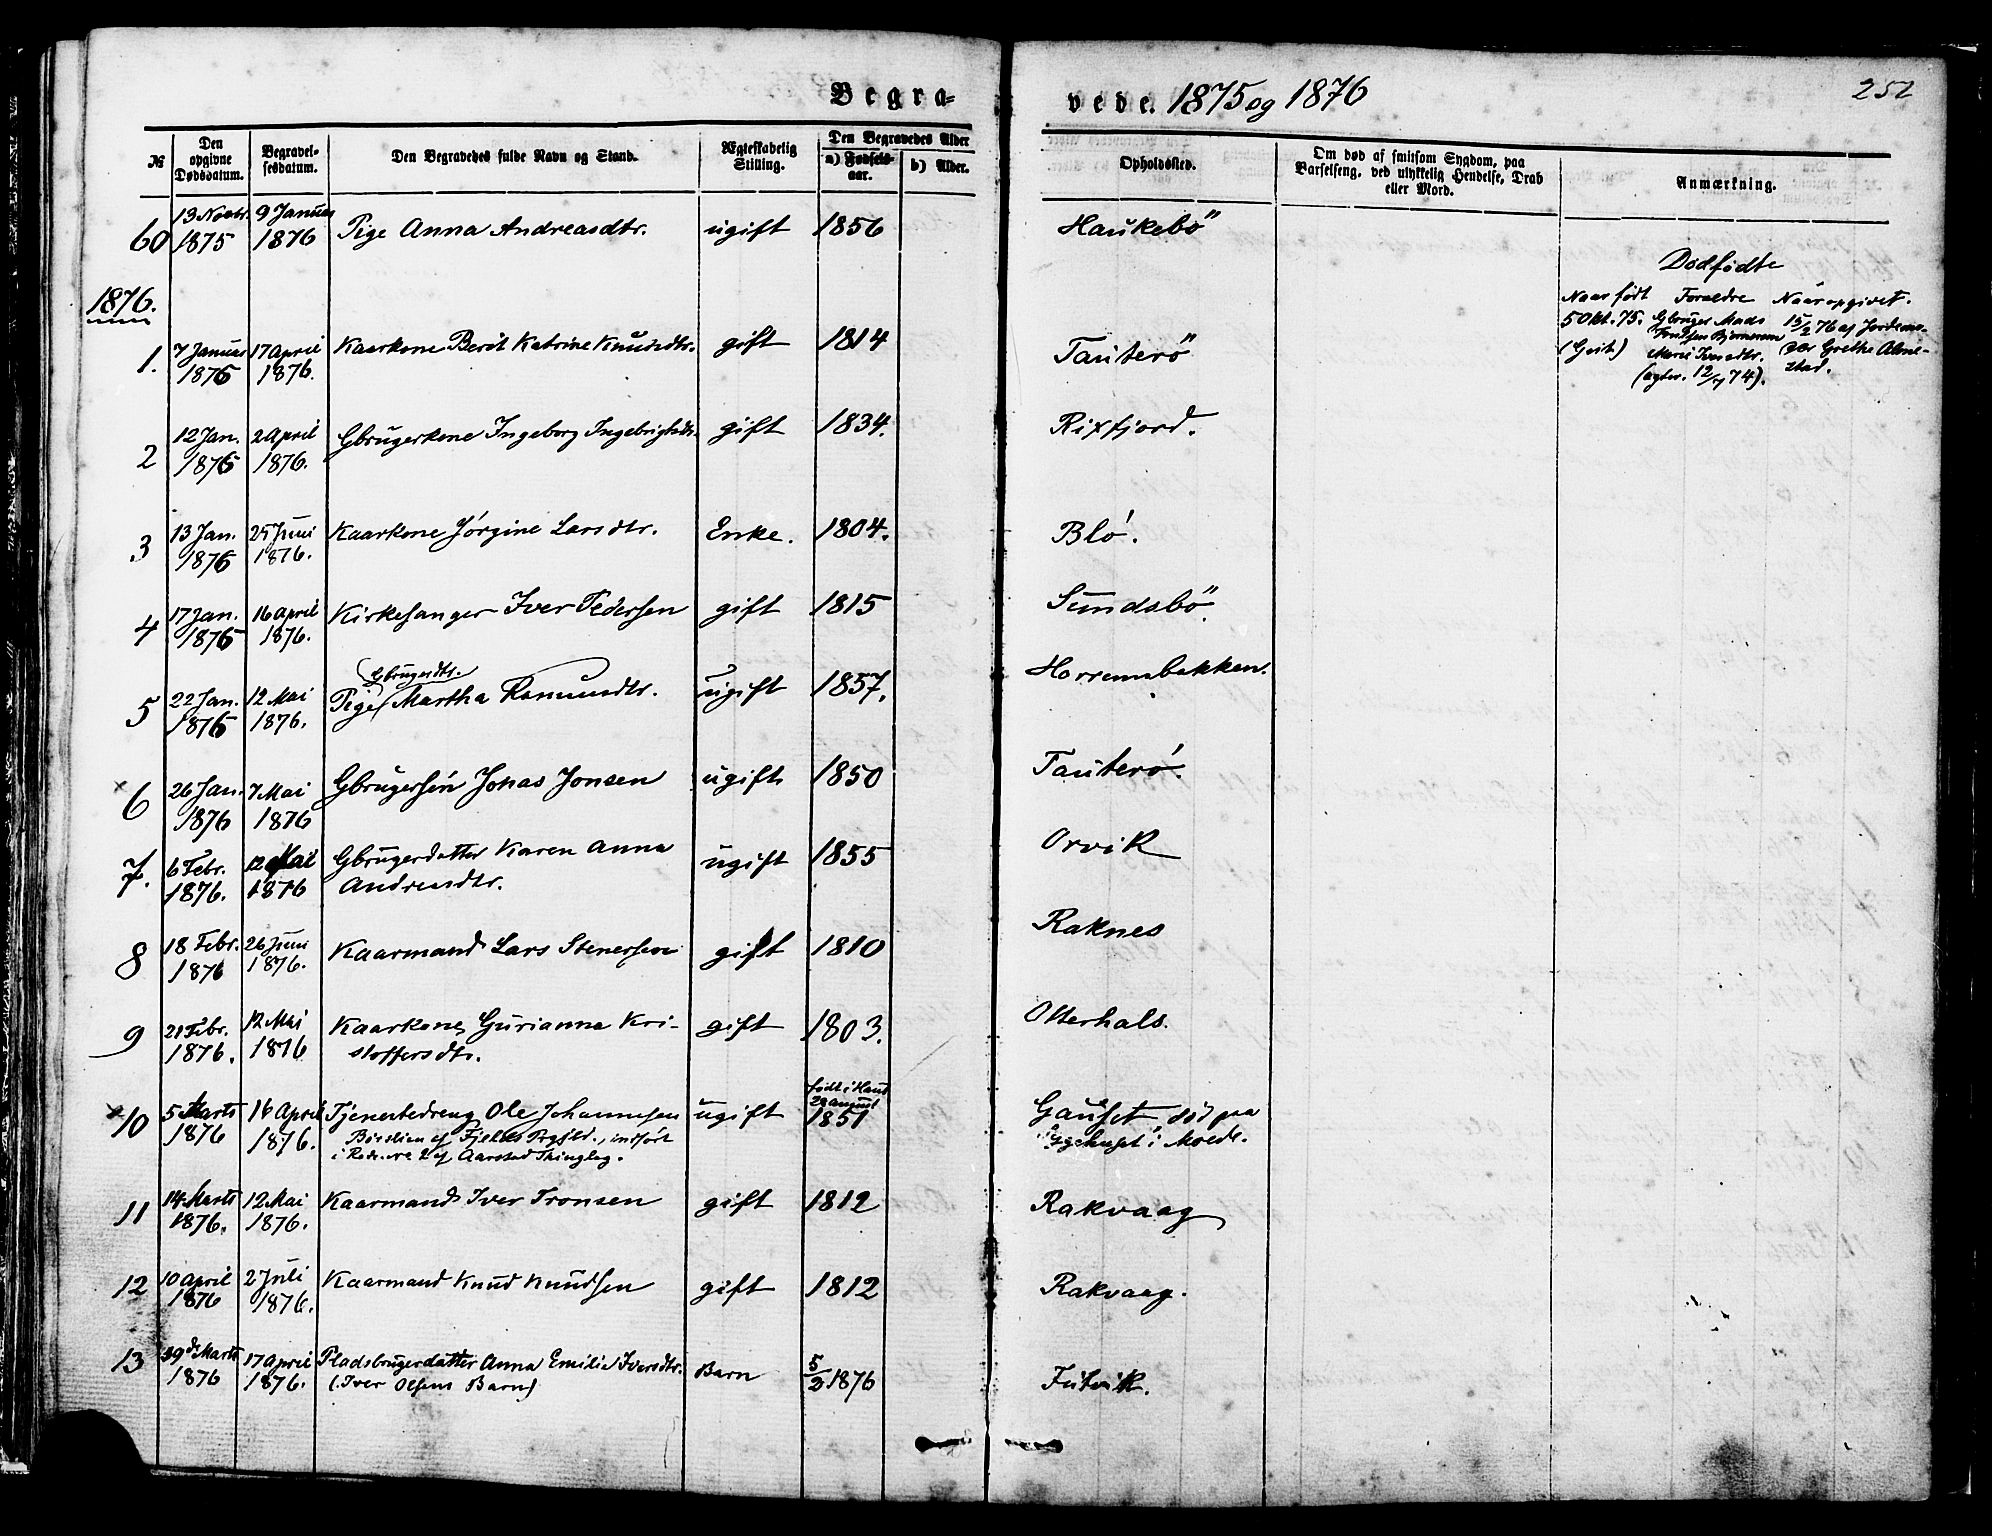 Begra-
vede. 1875 og 1876
252
№
Den opgivne Dødsdatum.
Begravel-sesdatum.
Den Begravedes fulde Navn og Stand.
Ægteskabelig Stilling.
Den Begravedes Alder
a) Fødsels-aar.
b) Alder.
Opholdssted.
Om død af smitsom Sygdom, paa Barselseng, ved ulykkelig Hendelse, Drab eller Mord.
Anmærkning.
60 13 Novbr. 1875 9 Januar 1876 Pige Anna Andreasdtr. ugift 1856 Haukebø
Dødfødte
Naar født Forældre Naar opgivet.
5 Okt. 75. Gbruger Mads 15/2 76 af Jordemo-
(Gut) Knutsen Marie Iversdtr. der Grethe Alme-
(ægtev. 74). stad.
1876.
1. 7 Januar 1876 17 April 1876. Kaarkone Berit Katrine Knudsdtr. gift 1814 Tauterø
2 12 Jan. 1876 2 April 1876. Gbrugerkone Ingeborg Ingebrigtsdtr. gift 1834. Rixfjord.
3 13 Jan. 1876 25 Juni 1876. Kaarkone Jørgine Larsdtr. Enke. 1804. Blø.
4 17 Jan. 1876 16 April 1876. Kirkesanger Iver Pedersen gift 1815 Sundsbø.
5 22 Jan. 1876 12 Mai 1876. Pige Gbrugerdtr. Martha Rasmusdtr. ugift 1857. Horremsbakken.
6 26 Jan. 1876 7 Mai 1876 Gbrugersøn Jonas Jonsen ugift 1850 Tauterø.
7. 6 Febr. 1876. 12 Mai 1876 Gbrugerdatter Karen Anna
Andreasdtr. ugift 1855 Orvik
8 18 Febr. 1876 26 Juni 1876. Kaarmand Lars Stenersen gift 1810 Raknes
9 21 Febr. 1876. 12 Mai 1876 Kaarkone Gurianna Kri-
stoffersdtr. gift 1803. Otterhals.
10 5 Marts 1876 16 April 1876. Tjenestedreng Ole Johannesen
af Fjelds Prgjld., indført
i Rode No 2 af Aarstad Thinglag. ugift født i Haus
28 August
1851 Gauset, død paa
Sygehuset i Molde.
11 14 Marts 1876. 12 Mai 1876. Kaarmand Iver Tronsen gift 1812 Rakvaag
12 10 April 1876 2 Juli 1876. Kaarmand Knud Knudsen gift 1812 Rakvaag.
13 29de Marts 1876 17 April 1876. Pladsbrugerdatter Anna Emilie Iversdtr.
(Iver Olsens Barn) Barn 5/2 1876 Julvik.